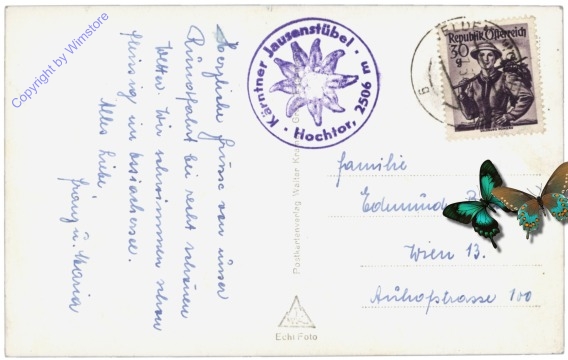 Copyright by Wimstore
Herzliche Grüsse von unser
Rundfahrt bei recht schönen
Wetter. Wir schwimmen schon
fleissig im Ossiachersee.
Alles Liebe
Franz u. Maria
Kärntner Jausenstübel · Hochtor, 2506 m ·
VELDEN
6
Republik Österreich
30
g
Postkartenverlag Walter
Echt Foto
Familie
Edmund
Wien 13.
Auhofstrasse 100